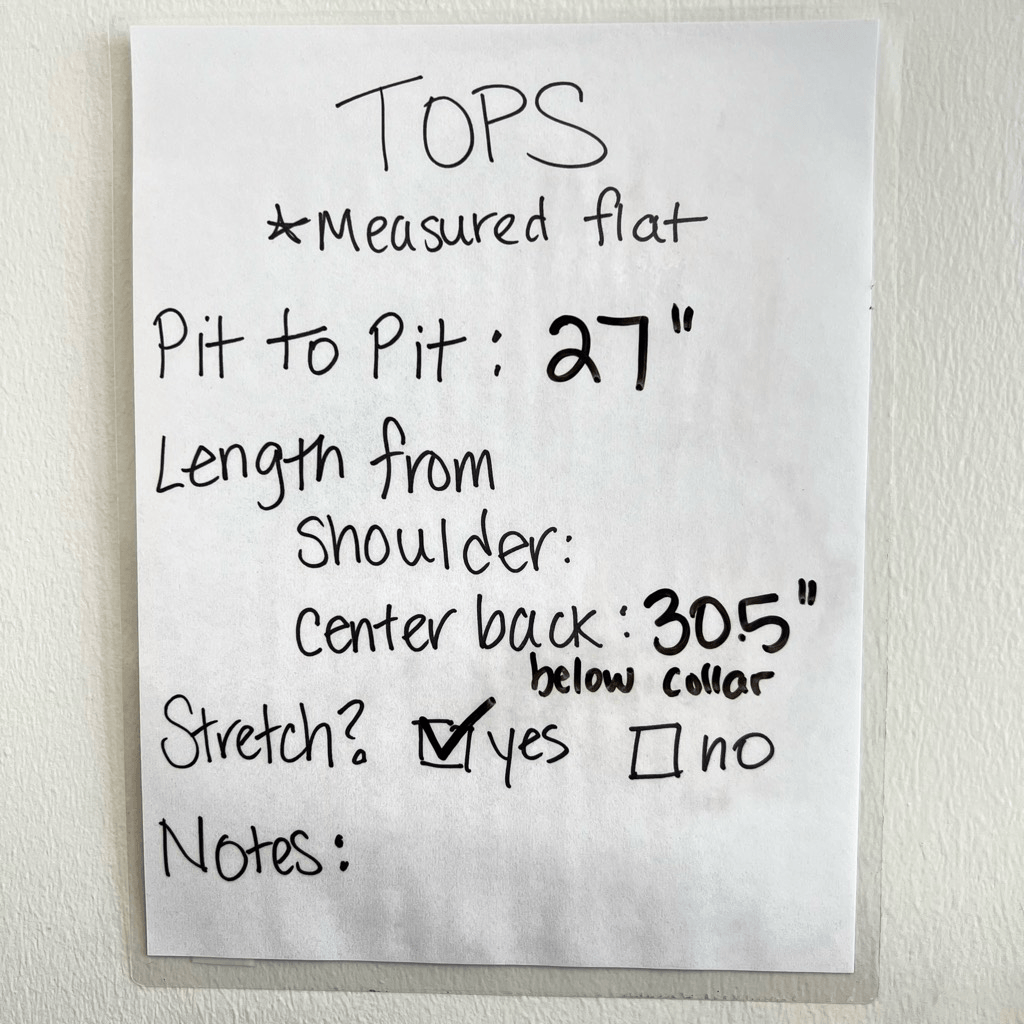 TOPS
*Measured flat
Pit to Pit: 27"
Length from
shoulder:
center back: 30.5"
below collar
Stretch? ☑ yes ☐ no
Notes: